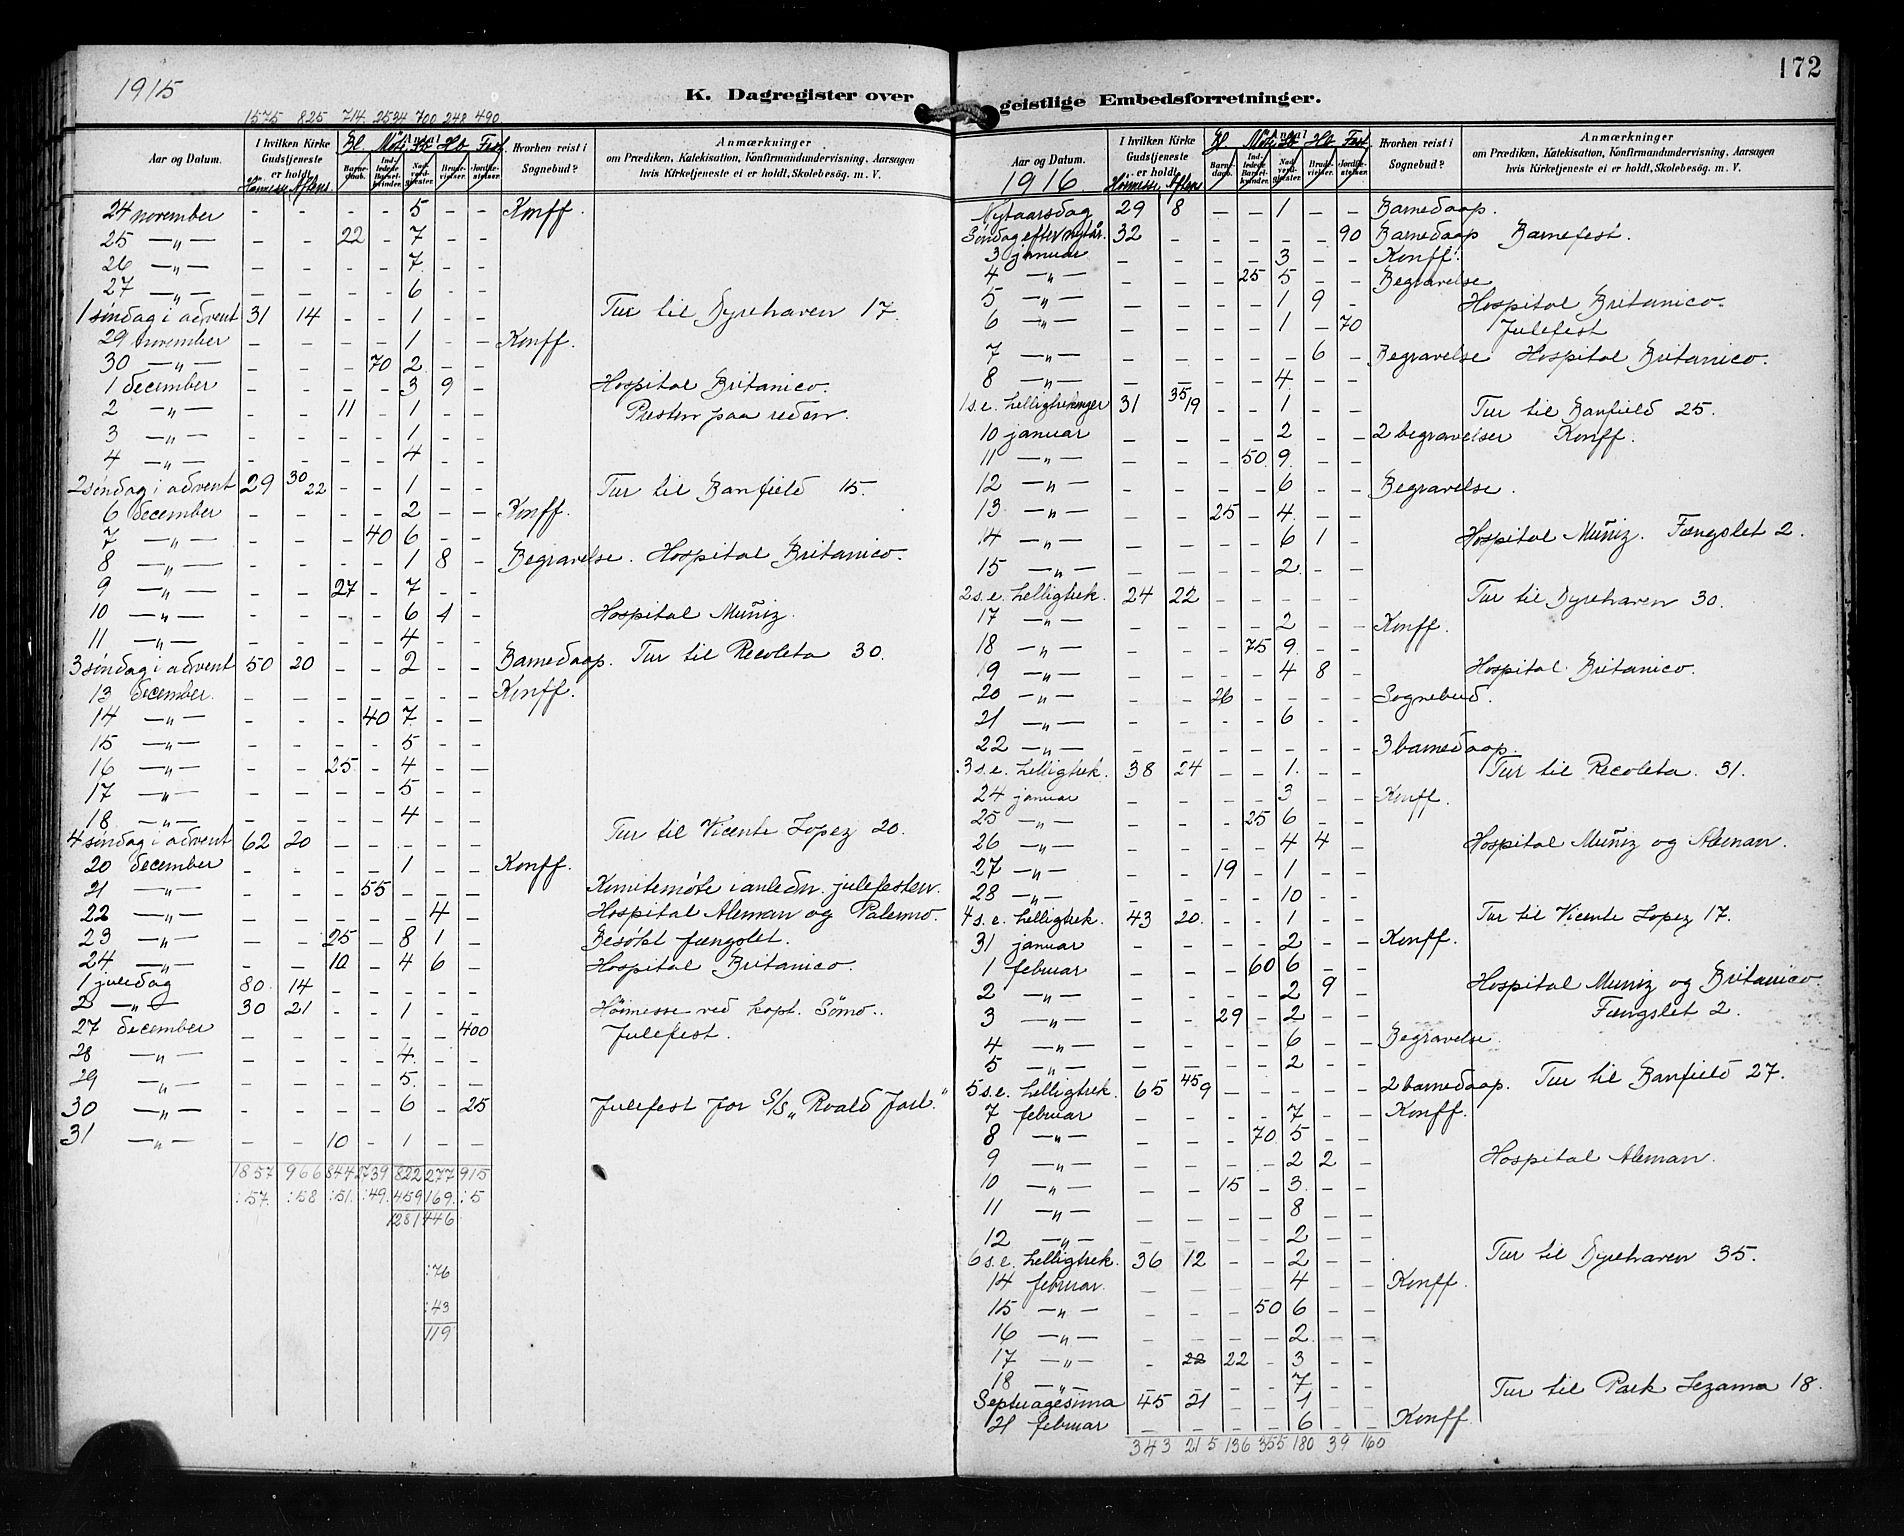 1915
K. Dagregister over
1575 825 714 2534 700 248 490
Aar og Datum. I hvilken Kirke Gudstjeneste er holdt. Barnedaab. Indledede Barselkvinder. Nadverdgjester. Brudevielser. Jordfæstelser. Hvorhen reist i Sognebud? Anmærkninger om Prædiken, Katekisation, Konfirmandundervisning. Aarsagen hvis Kirketjeneste ei er holdt, Skolebesøg. m. V.
Høimesse Aftens Bl Møt. Hb Fest
24 november - - - - 5 - - Konff.
25 —„— - - 22 - 7 - -
26 —„— - - - - 7 - -
27 —„— - - - - 6 - -
1 søndag i advent 31 14 - - 1 - - Tur til Dyrehaven 17.
29 november - - - - 1 - - Konff.
30 —„— - - - 70 2 - -
1 december - - - - 3 9 - Hospital Britanico.
2 —„— - - 11 - 1 - - Presten paa reden.
3 —„— - - - - 1 - -
4 —„— - - - - 4 - -
2 søndag i advent 29 30 22 - - 1 - - Tur til Banfield 15.
6 december - - - - 2 - - Konff.
7 —„— - - - 40 6 - -
8 —„— - - - - 1 8 - Begravelse. Hospital Britanico.
9 —„— - - 27 - 7 - -
10 —„— - - - - 6 4 - Hospital Muñiz.
11 —„— - - - - 4 - -
3 søndag i advent 50 20 - - 2 - - Barnedaap. Tur til Recoleta 30.
13 december - - - - - - - Konff.
14 —„— - - - 40 7 - -
15 —„— - - - - 5 - -
16 —„— - - 25 - 4 - -
17 —„— - - - - 5 - -
18 —„— - - - - 4 - -
4 søndag i advent 62 20 - - - - - Tur til Vicente Lopez 20.
20 december - - - - 1 - - Konff.
21 —„— - - - 55 - - - Komitemøte i anledn. julefesten.
22 —„— - - - - - 4 - Hospital Aleman og Palermo.
23 —„— - - 25 - 8 1 - Besøkt fængslet.
24 —„— - - 10 - 4 6 - Hospital Britanico.
1 juledag 80 14 - - - - -
2 —„— 30 21 - - 1 - - Høimesse ved kapt. Sømo.
27 december - - - - - - 400 Julefest.
28 —„— - - - - 4 - -
29 —„— - - - - 5 - -
30 —„— - - - - 6 - 25 Julefest for S/S „Roald Jarl."
31 —„— - - 10 - 1 - -
1857 966 844 2739 822 277 915
:57 :58 :51 :49 459 169 :5
1281 446
:76
:43
119
172
geistlige Embedsforretninger.
Aar og Datum. I hvilken Kirke Gudstjeneste er holdt. Barnedaab. Indledede Barselkvinder. Nadverdgjester. Brudevielser. Jordfæstelser. Hvorhen reist i Sognebud? Anmærkninger om Prædiken, Katekisation, Konfirmandundervisning. Aarsagen hvis Kirketjeneste ei er holdt, Skolebesøg. m. V.
1916 Høimesse Aftens Bl Møt. Hb Fest
Nytaarsdag 29 8 - - 1 - - Barnedaap.
Søndag efter nytår. 32 - - - - - 90 Barnedaap Barnefest.
3 januar - - - - 3 - - Konff.
4 —„— - - - 25 5 - - Begravelse
5 —„— - - - - 1 9 - Hospital Britanico.
6 —„— - - - - 1 - 70 Julefest
7 —„— - - - - - 6 - Begravelse Hospital Britanico.
8 —„— - - - - 4 - -
1 s.e. helligtrekonger 31 35 19 - - 1 - - Tur til Banfield 25.
10 januar - - - - 2 - - 2 begravelser Konff.
11 —„— - - - 50 9 - -
12 —„— - - - - 6 - - Begravelse.
13 —„— - - 25 - 4 - -
14 —„— - - - - 6 1 - Hospital Muñiz. Fængslet 2.
15 —„— - - - - 2 - -
2 s.e. helligtrek. 24 22 - - - - - Tur til Dyrehaven 30.
17 —„— - - - - 2 - - Konff.
18 —„— - - - 75 9 - -
19 —„— - - - - 4 8 - Hospital Britanico.
20 —„— - - 26 - - - - Sognebud.
21 —„— - - - - 6 - -
22 —„— - - - - - - - 3 barnedaap.
3 s.e. helligtrek. 38 24 - - 1 - - Tur til Recoleta. 31.
24 januar - - - - 3 - - Konff.
25 —„— - - - 25 6 - -
26 —„— - - - - 4 4 - Hospital Muñiz og Aleman.
27 —„— - - 19 - 1 - -
28 —„— - - - - 10 - -
4 s.e. helligtrek. 43 20 - - 1 - - Tur til Vicente Lopez 17.
31 januar - - - - 2 - - Konff.
1 februar - - - 60 6 - -
2 —„— - - - - 2 9 - Hospital Muniz og Britanico.
3 —„— - - 29 - 2 - - Fængslet 2.
4 —„— - - - - 6 - - Begravelse.
5 —„— - - - - 2 - -
5 s.e. helligtrek. 65 45 9 - - - - - 2 barnedaap. Tur til Banfield 27.
7 februar - - - - 7 - - Konff.
8 —„— - - - 70 5 - -
9 —„— - - - - 2 2 - Hospital Aleman.
10 —„— - - 15 - 3 - -
11 —„— - - - - 8 - -
12 —„— - - - - 2 - -
6 s.e. helligtrek. 36 12 - - 2 - - Tur til Dyrehaven 35.
14 februar - - - - 4 - - Konff.
15 —„— - - - 50 6 - -
16 —„— - - - - 2 - -
17 —„— - 22 22 - 3 - -
18 —„— - - - - 7 - -
Septuagesima 45 21 - - 1 - - Tur til Park Lezama 18.
21 februar - - - - 6 - - Konff.
343 215 136 355 180 39 160